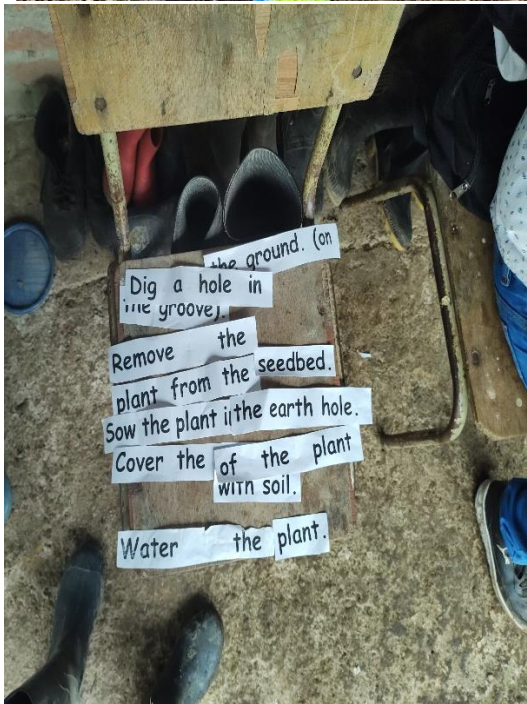 the ground. (on
Dig a hole in
the groove).
Remove the
plant from the seedbed.
Sow the plant in the earth hole.
Cover the of the plant
with soil.
Water the plant.